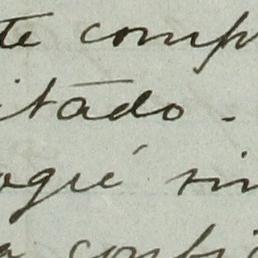 te comp
itado -
ogié sin
a confi